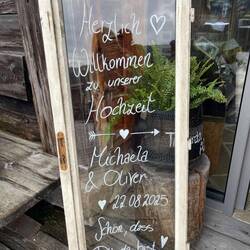 Herzlich
Willkommen
zu unserer
Hochzeit
Michaela
& Oliver
22.08.2025
Schön, dass
Du da bist